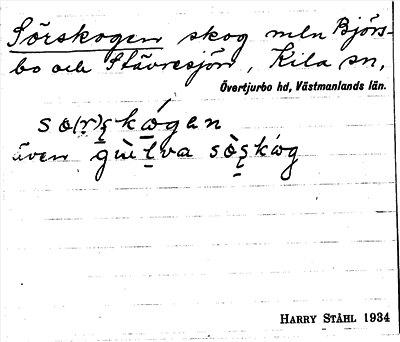 Sörskogen skog mln Björs-
bo och Stävresjön, Kila sn,
Övertjurbo hd, Västmanlands län.
so(r)skógen
även
HARRY STÅHL 1934